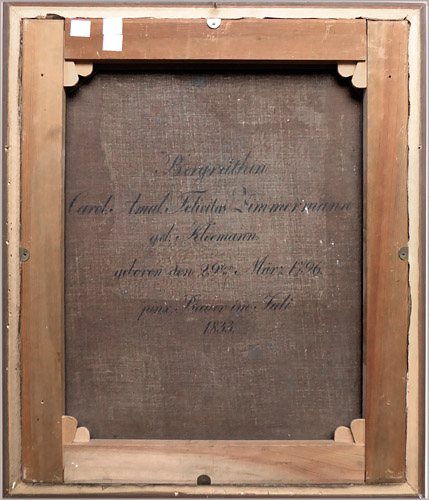 Bergräthin
Carol. Amal. Felicitas Zimmermann
geb. Kleemann
geboren den 29ten März 1796.
pinx. Bauer im Juli
1833.